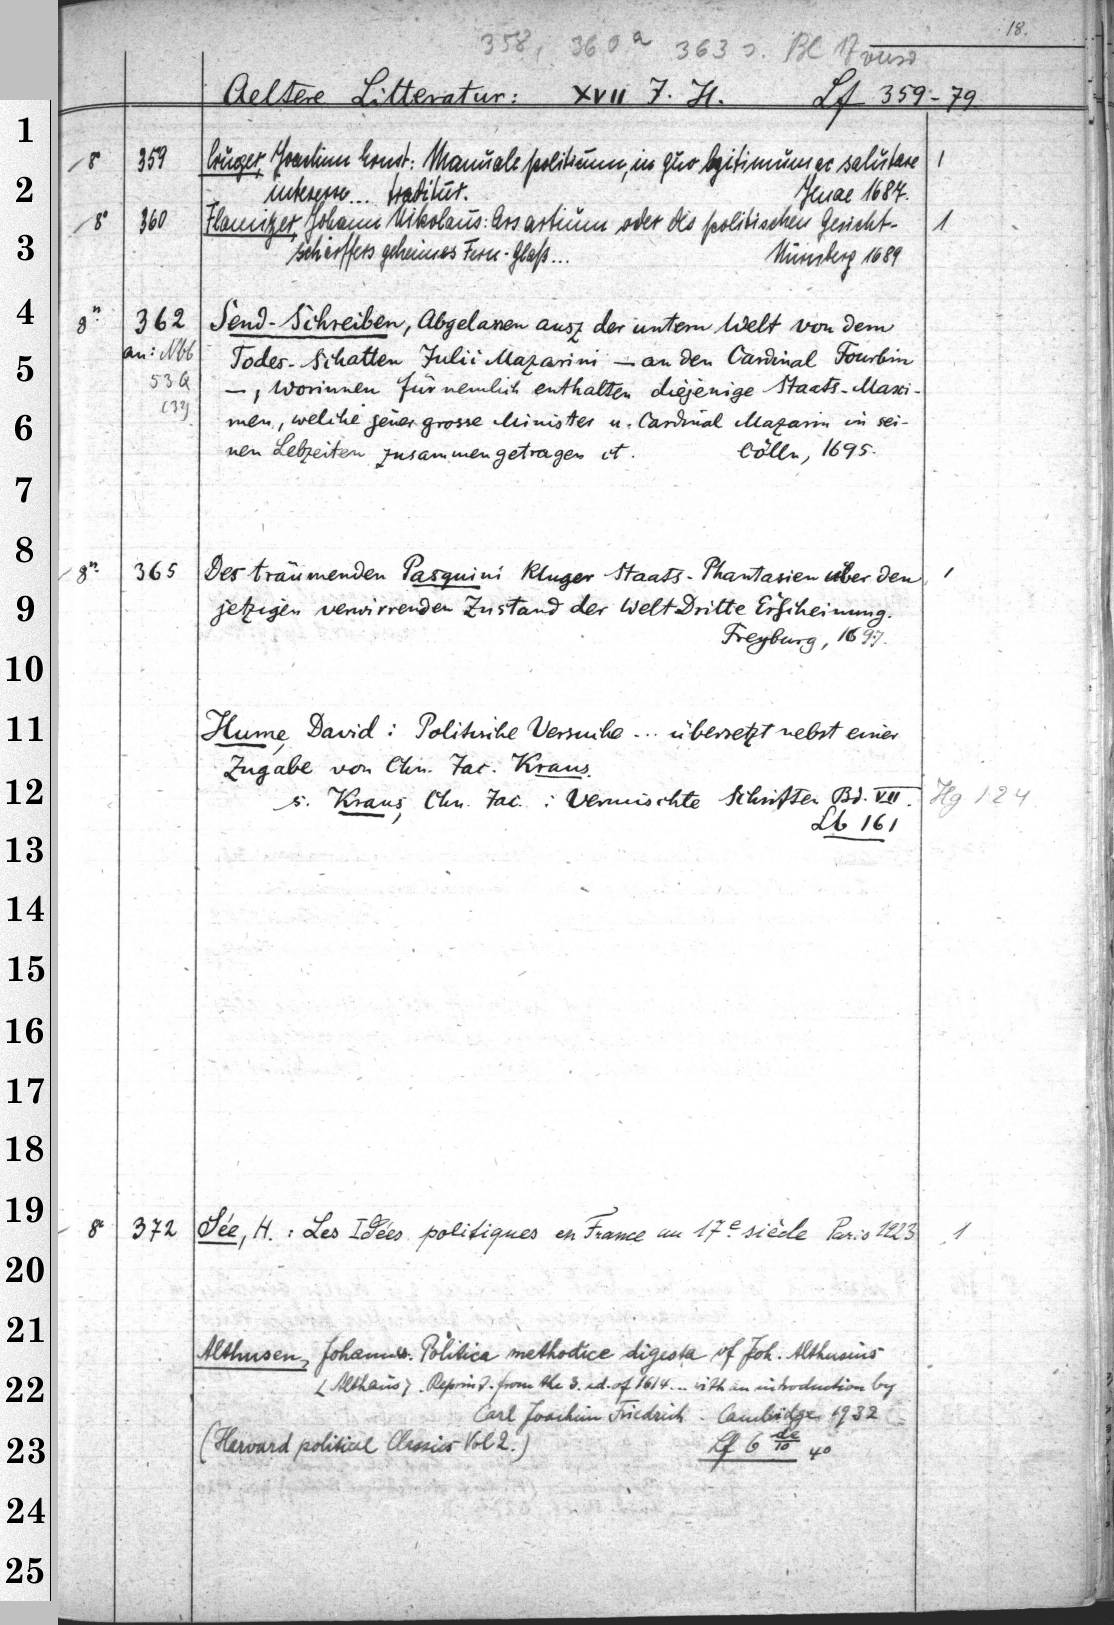 18.
358, 360a 363 s. Bl 17 vers
Aeltere Litteratur: XVII J. H. Lf 359-79
1
8° 359 Crüger, Joachim Ernst: Manuale politicum, in quo legitimum ac salutare 1
2
interesse... traditur. Jenae 1687.
8° 360 Flamitzer, Johann Nikolaus: Ars artium oder des politischen Gesicht- 1
3
schärffers geheimes Fern-Glaß... Nürnberg 1689
4
8° 362 Send-Schreiben, Abgelassen ausz der untern Welt von dem
an: Nbb
5
Todes-Schatten Julii Mazarini — an den Cardinal Fourbin
53a
—, worinnen fürnemlich enthalten diejenige Staats-Maxi-
6
men, welche jener grosse Minister u. Cardinal Mazarin in sei-
nen Lebzeiten zusammengetragen et. Cölln, 1695.
7
8
8° 365 Des träumenden Pasquini kluger Staats-Phantasien über den 1
9
jetzigen verwirrenden Zustand der Welt Dritte Erscheinung.
Freyburg, 1697.
10
11
Hume, David: Politische Versuche ... übersetzt nebst einer
Zugabe von Chn. Jac. Kraus.
12
s. Kraus, Chn. Jac.: Vermischte Schriften Bd. VII. Hg 124
Lb 161
13
14
15
16
17
18
19
8° 372 Sée, H.: Les Idées politiques en France au 17e siècle Paris 1923 1
20
21
Althusen, Johannes. Politica methodice digesta of Joh. Althusius
22
<Althaus>. Reprind. from the 3. ed. of 1614... with an introduction by
Carl Joachim Friedrich. Cambridge 1932
23
(Harvard political Classics Vol 2.) Lf 6 de/10 40
24
25